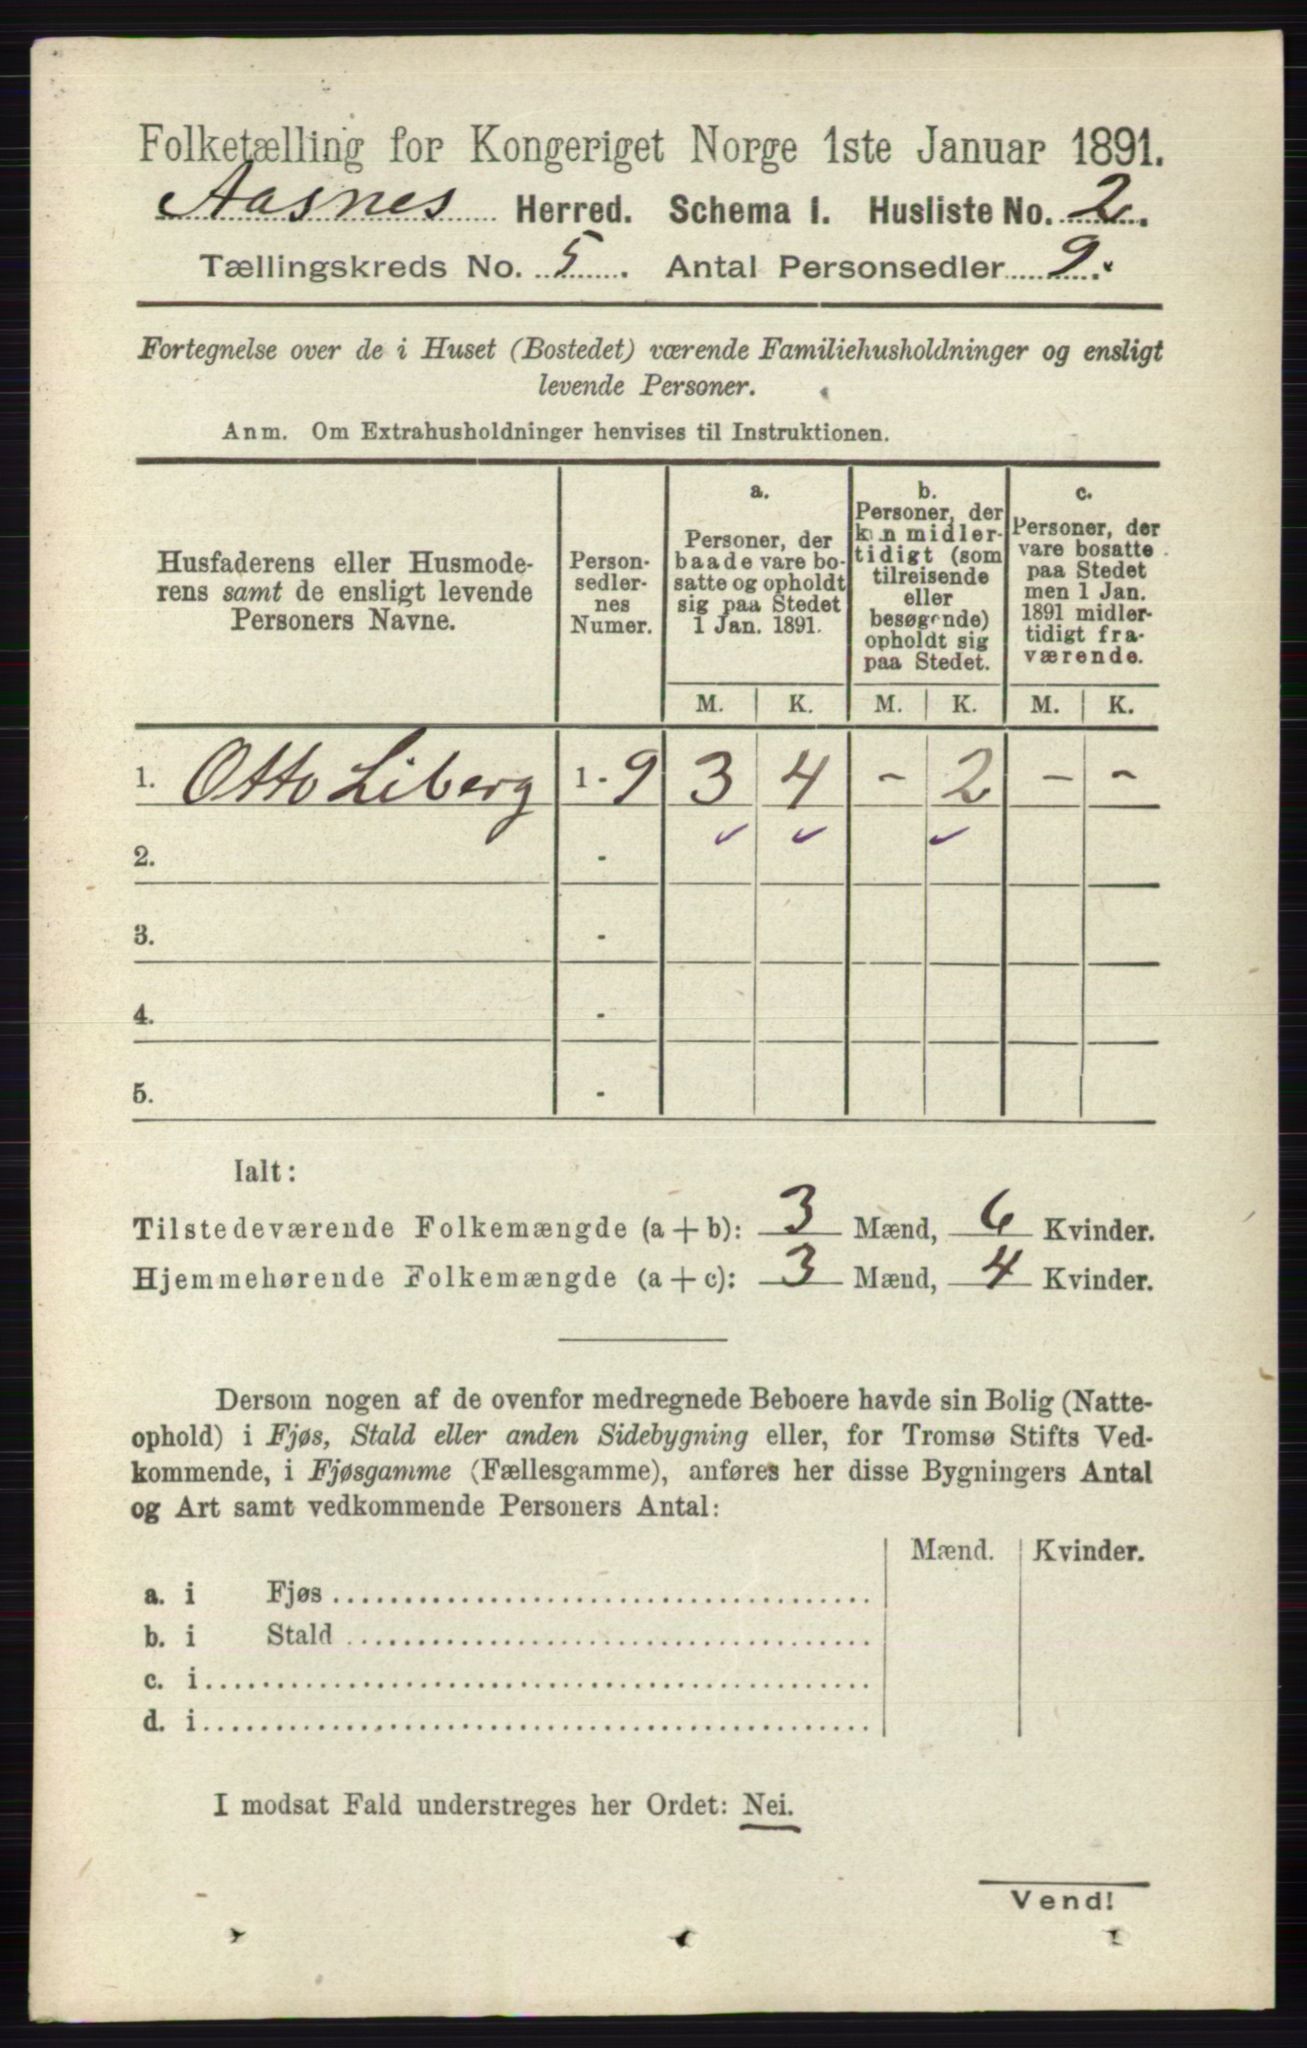 Folketælling for Kongeriget Norge 1ste Januar 1891.
Aasnes Herred. Schema I. Husliste No. 2.
Tællingskreds No. 5. Antal Personsedler 9.
Fortegnelse over de i Huset (Bostedet) værende Familiehusholdninger og ensligt
levende Personer.
Anm. Om Extrahusholdninger henvises til Instruktionen.
Husfaderens eller Husmode-
rens samt de ensligt levende
Personers Navne.
Person-
sedler-
nes
Numer.
a.
Personer, der
baade vare bo-
satte og opholdt
sig paa Stedet
1 Jan. 1891.
b.
Personer, der
kun midler-
tidigt (som
tilreisende
eller
besøgende)
opholdt sig
paa Stedet.
c.
Personer, der
vare bosatte
paa Stedet
men 1 Jan.
1891 midler-
tidigt fra-
værende.
M. K. M. K. M. K.
1. Otto Liberg 1-9 3 4 - 2 - -
✓ ✓ ✓
2. -
3. -
4. -
5. -
Ialt:
Tilstedeværende Folkemængde (a + b): 3 Mænd, 6 Kvinder.
Hjemmehørende Folkemængde (a + c): 3 Mænd, 4 Kvinder.
Dersom nogen af de ovenfor medregnede Beboere havde sin Bolig (Natte-
ophold) i Fjøs, Stald eller anden Sidebygning eller, for Tromsø Stifts Ved-
kommende, i Fjøsgamme (Fællesgamme), anføres her disse Bygningers Antal
og Art samt vedkommende Personers Antal:
Mænd. Kvinder.
a. i Fjøs
b. i Stald
c. i
d. i
I modsat Fald understreges her Ordet: Nei.
Vend!